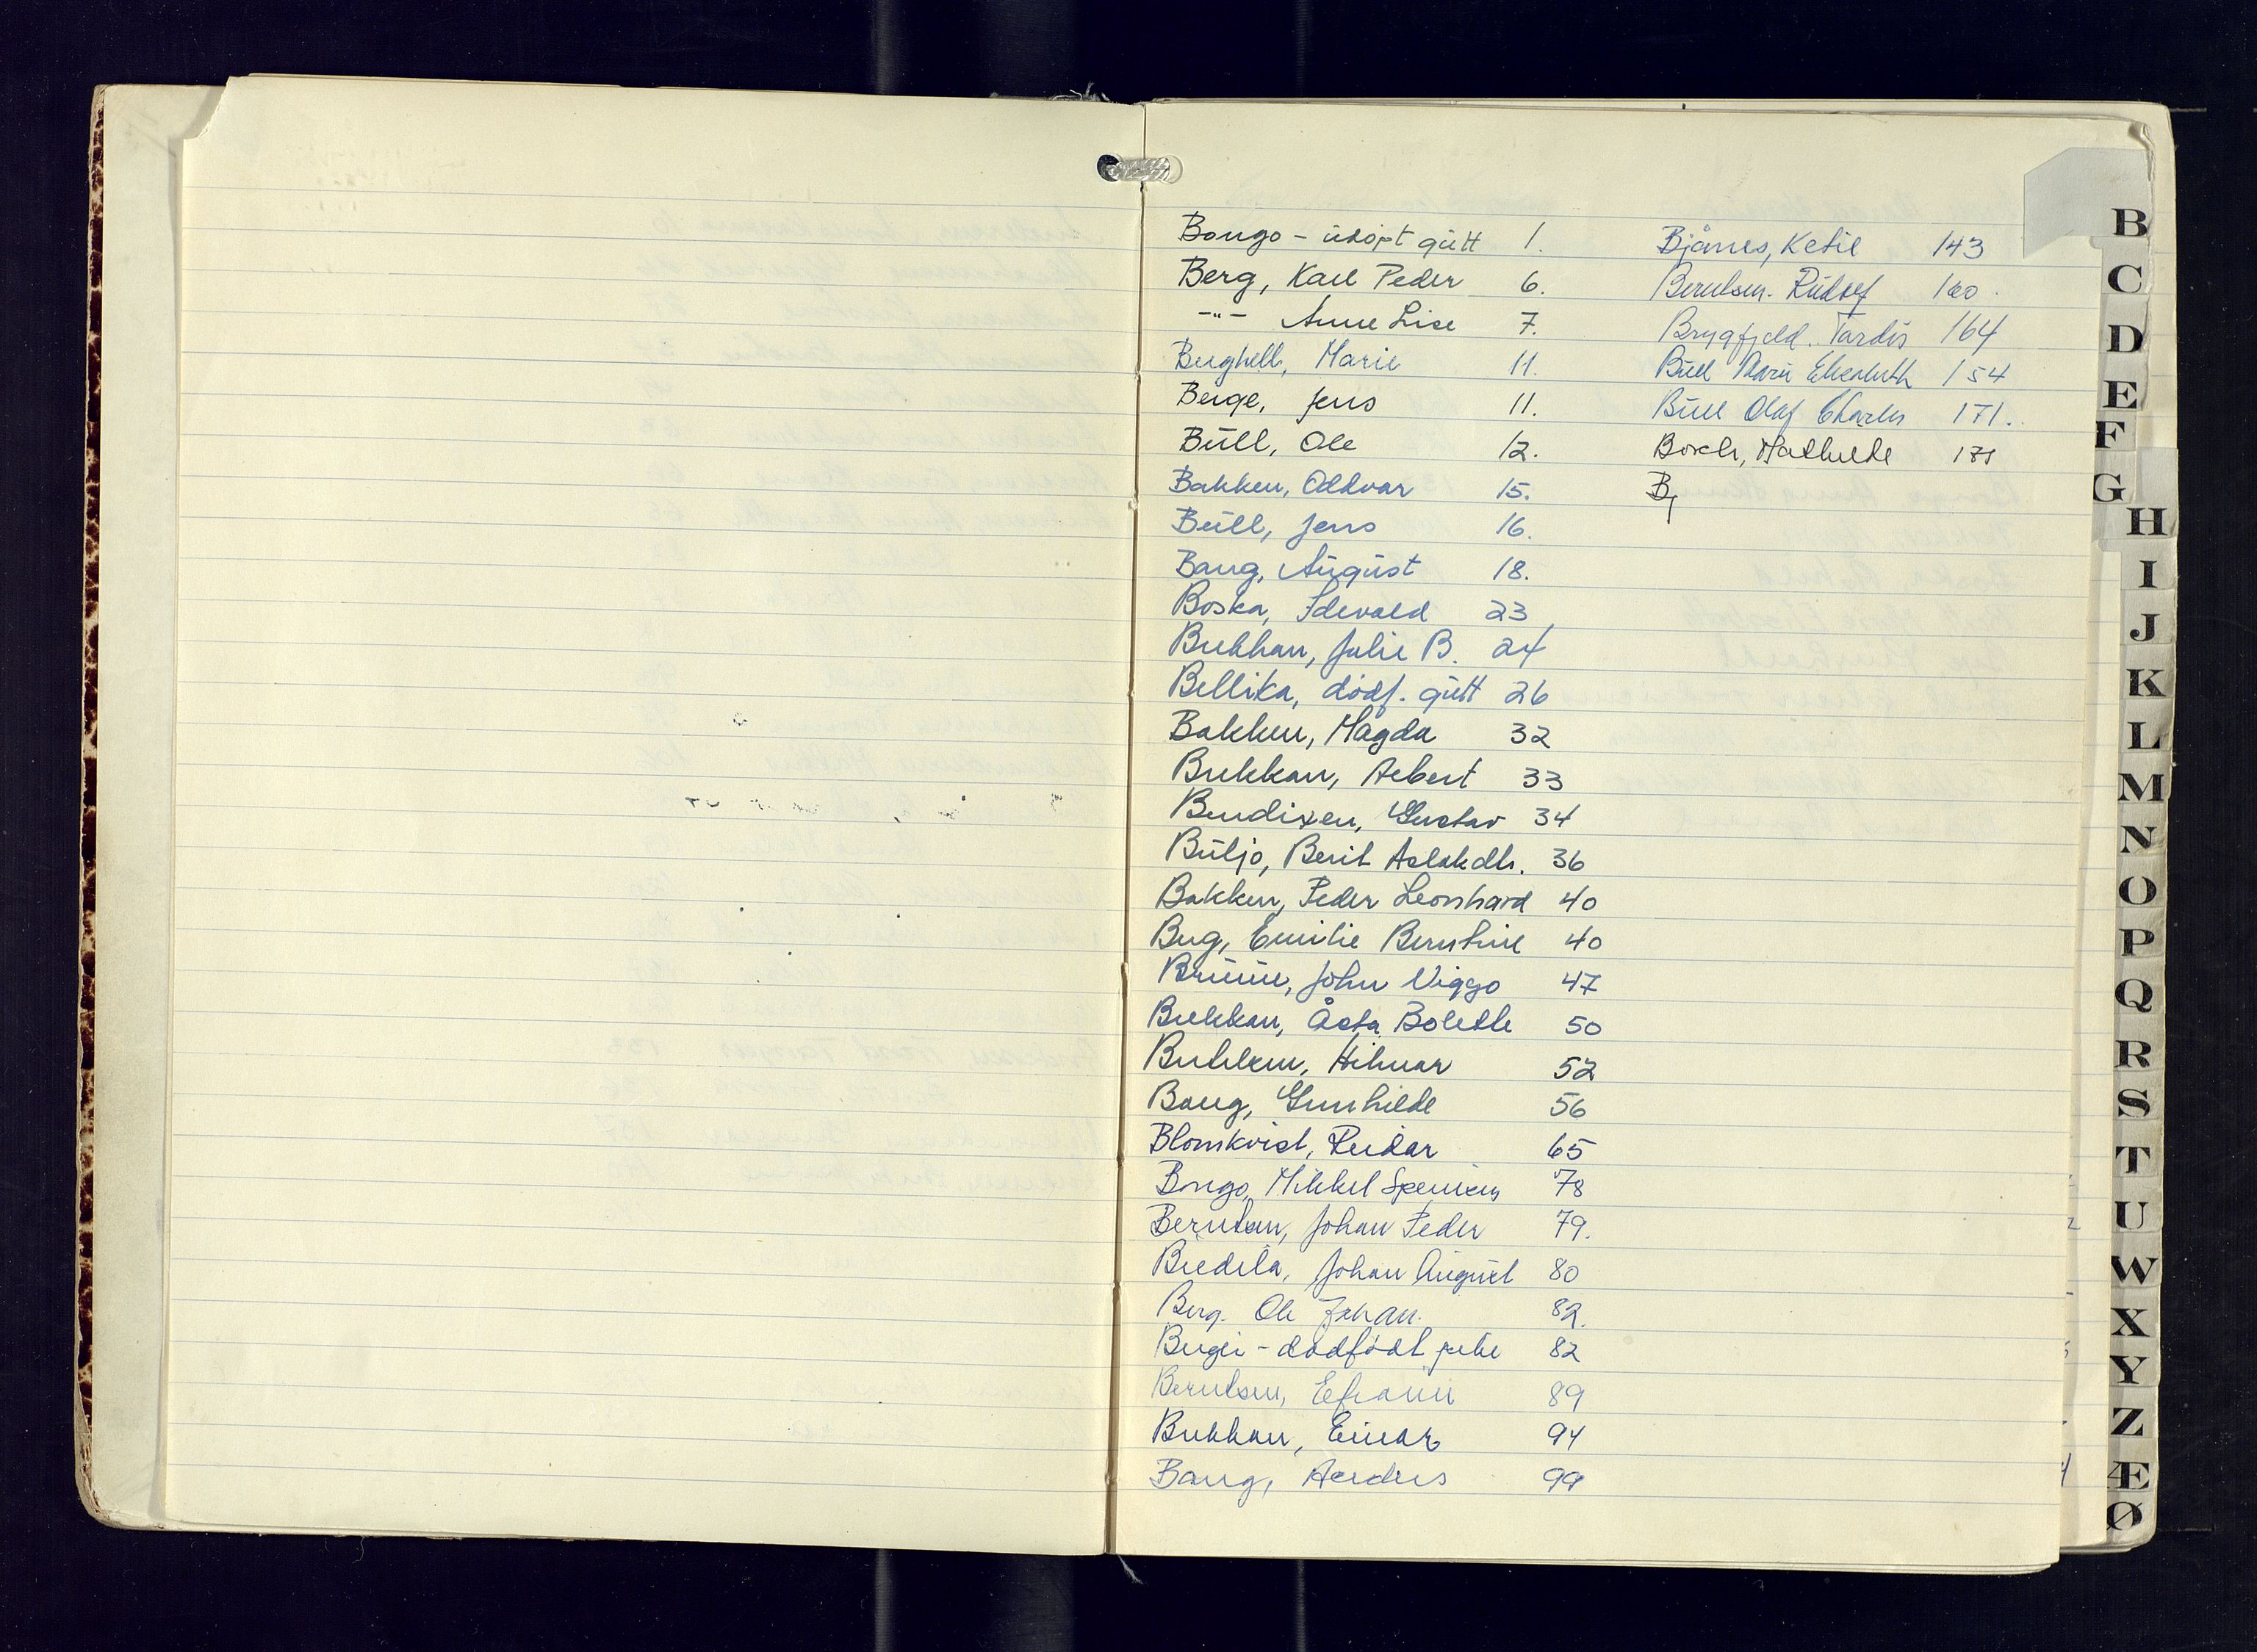 Bongo - udøpt gutt 1.
Berg, Karl Peder 6.
-"- Anne Lise 7.
Berghell, Marie 11.
Berge, Jens 11.
Bull, Ole 12.
Bakken, Oddvar 15.
Bull, Jens 16.
Bang, August 18.
Boska, Edevald 23
Brekkan, Julie B. 24
Bellika, dødf. gutt 26
Bakken, Magda 32
Brekkan, Albert 33
Bendixen, Gustav 34
Buljo, Berit Aslakdtr. 36
Bakken, Peder Leonhard 40
Berg, Emilie Bernhine 40
Bruun, John Viggo 47
Brekkan, Åsta Bolette 50
Hilmar 52
Bang, Gunhilde 56
Blomkvist, Reidar 65
Bongo, Mikkel 78
Berntsen, Johan Peder 79.
Johan August 80
Berg. Ole Johan. 82.
dødfødt pike 82
Berntsen, Efraim 89
Brekkan, Einar 94
Bang, Anders 99
Bjånes, Ketil 143
Berntsen. Rudolf 160.
Brygfjeld. Tardis 164
Bull Marie Elisabeth 154
Bull Olaf Charles 171.
Borch, Mathilde 171
B
B
C
D
E
F
G
H
I
J
K
L
M
N
O
P
Q
R
S
T
U
W
X
Y
Z
Æ
Ø